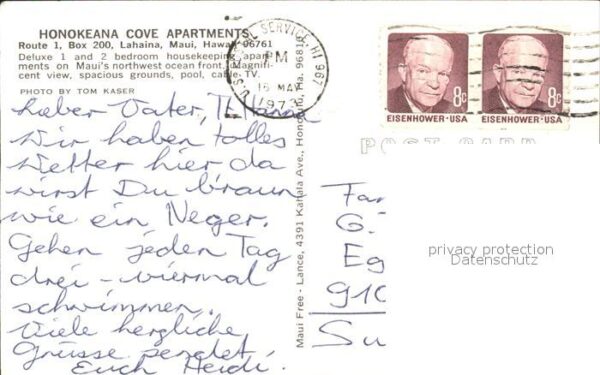 HONOKEANA COVE APARTMENTS
Route 1, Box 200, Lahaina, Maui, Hawaii 96761
Deluxe 1 and 2 bedroom housekeeping apart-
ments on Maui's northwest ocean front. Magnifi-
cent view, spacious grounds, pool, cable TV.
PHOTO BY TOM KASER
U.S. POSTAL SERVICE HI 967
PM
16 MAY
1973
8c EISENHOWER·USA
8c EISENHOWER·USA
POST CARD
Lieber Vater,
Wir haben tolles
Wetter hier da
wirst Du braun
wie ein Neger.
Gehen jeden Tag
drei-viermal
schwimmen.
Viele herzliche
Grüsse sendet
Euch Heidi.
Maui Free-Lance, 4391 Kahala Ave., Honolulu, Ha. 96816
Far
G.
Eg
910
Su
privacy protection
Datenschutz